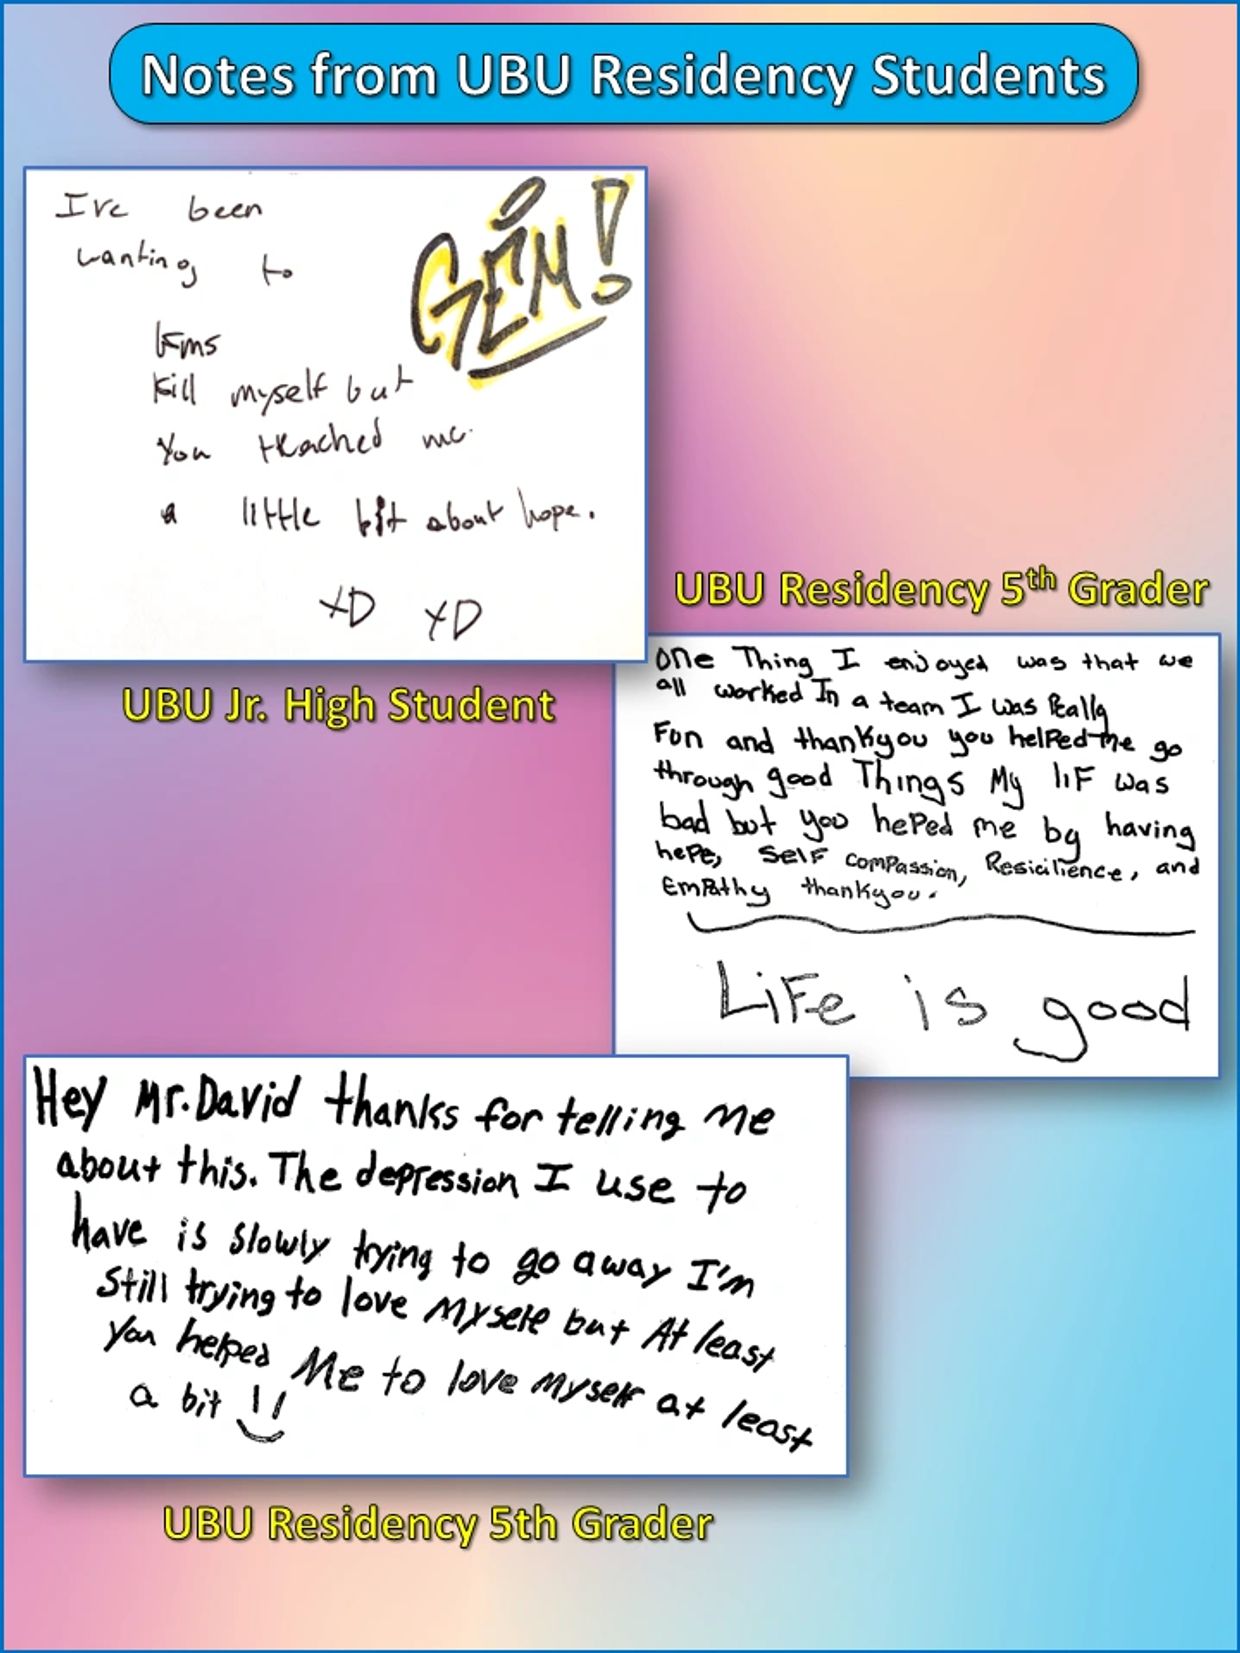 Notes from UBU Residency Students
I've been
wanting to
kms
kill myself but
you teached me
a little bit about hope.
XD XD
GEM!
UBU Jr. High Student
UBU Residency 5th Grader
One Thing I enjoyed was that we
all worked In a team I was Really
Fun and thankyou you helped me go
through good Things My lif was
bad but you heped me by having
hope, Self compassion, Resicilience, and
Empathy thankyou.
Life is good
Hey Mr.David thanks for telling me
about this. The depression I use to
have is slowly trying to go away I'm
still trying to love myself but At least
you helped Me to love myself at least
a bit
UBU Residency 5th Grader